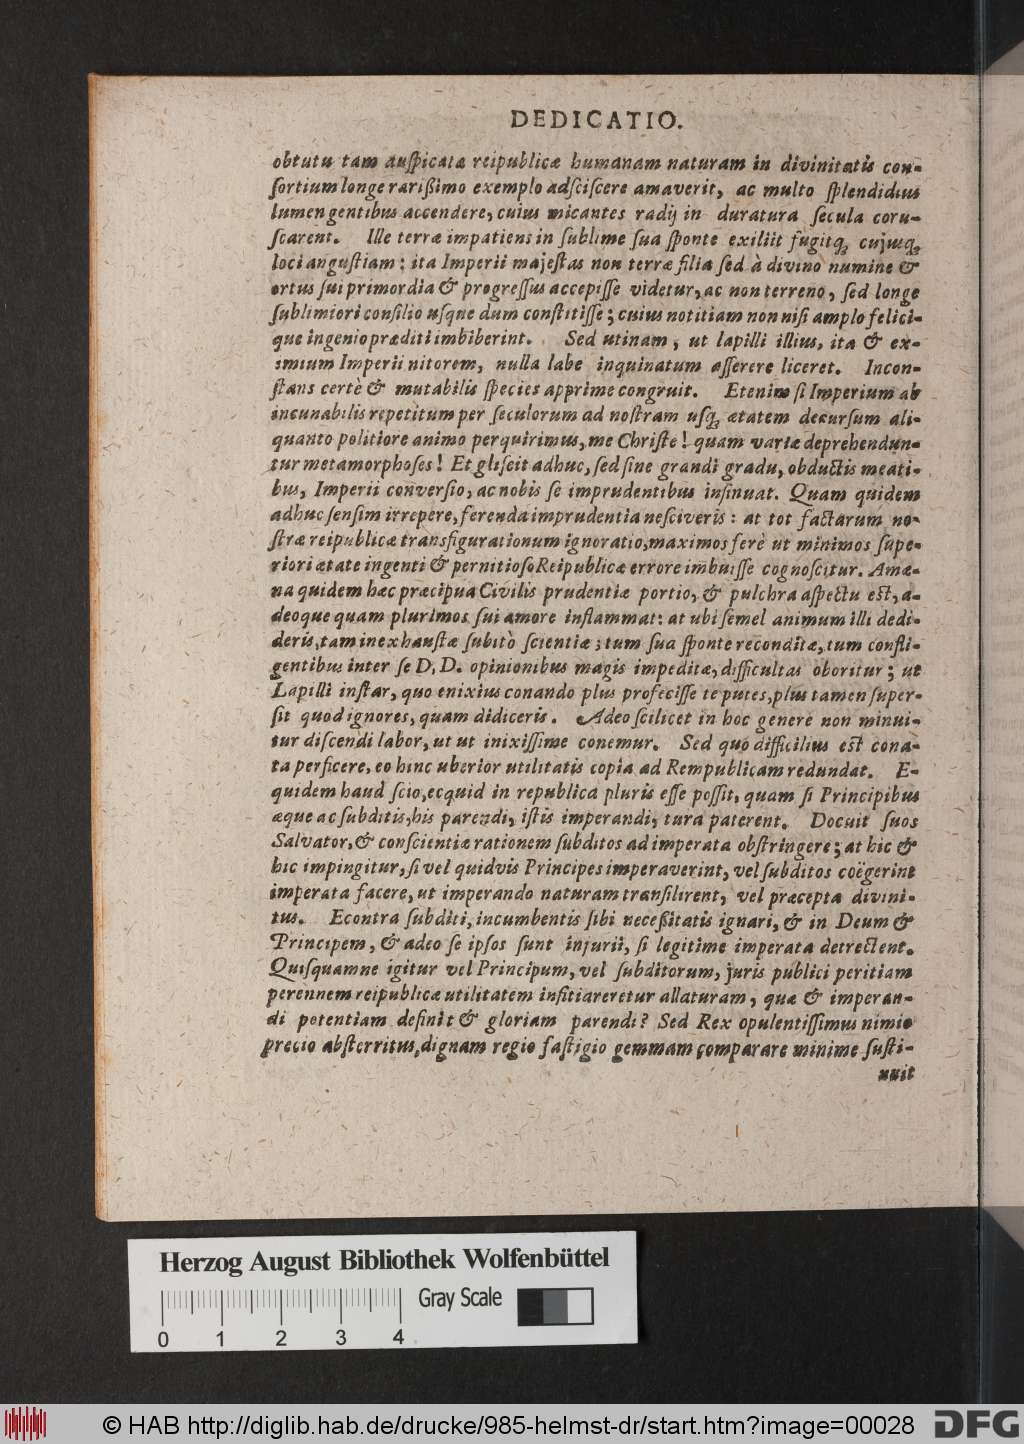 DEDICATIO.
obtutu tam auſpicata reipublicæ humanam naturam in divinitatis con-
ſortium longe rarißimo exemplo adſciſcere amaverit, ac multo ſplendidius
lumen gentibus accendere, cuius micantes radij in duratura ſecula coru-
ſcarent. Ille terræ impatiens in ſublime ſua ſponte exiliit fugitqꝫ cujusqꝫ
loci anguſtiam: ita Imperii majeſtas non terræ filia ſed à divino numine &
ortus ſui primordia & progreſſus accepiſſe videtur, ac non terreno, ſed longe
ſublimiori conſilio uſque dum conſtitiſſe; cuius notitiam non niſi amplo felici-
que ingenio præditi imbiberint. Sed utinam, ut lapilli illius, ita & ex-
imium Imperii nitorem, nulla labe inquinatum aſſerere liceret. Incon-
ſtans certè & mutabilis ſpecies apprime congruit. Etenim ſi Imperium ab
incunabilis repetitum per ſeculorum ad noſtram uſqꝫ ætatem decurſum ali-
quanto politiore animo perquirimus, me Chriſte! quam variæ deprehendun-
tur metamorphoſes! Et gliſcit adhuc, ſed ſine grandi gradu, obductis meati-
bus, Imperii converſio, ac nobis ſe imprudentibus inſinuat. Quam quidem
adhuc ſenſim irrepere, ferenda imprudentia neſciveris: at tot factarum no-
ſtræ reipublicæ transfigurationum ignoratio, maximos ferè ut minimos ſupe-
riori ætate ingenti & pernitioſo Reipublicæ errore imbuiſſe cognoſcitur. Amæ-
na quidem hæc præcipua Civilis prudentiæ portio, & pulchra aſpectu eſt, a-
deoque quam plurimos ſui amore inflammat: at ubi ſemel animum illi dedi-
deris, tam inexhauſtæ ſubitò ſcientiæ; tum ſua ſponte reconditæ, tum confli-
gentibus inter ſe D, D. opinionibus magis impeditæ, difficultas oboritur; ut
Lapilli inſtar, quo enixius conando plus profeciſſe te putes, plus tamen ſuper-
ſit quod ignores, quam didiceris. Adeo ſcilicet in hoc genere non minui-
tur diſcendi labor, ut ut inixiſſime conemur. Sed quo difficilius eſt cona-
ta perficere, eo hinc uberior utilitatis copia ad Rempublicam redundat. E-
quidem haud ſcio, ecquid in republica pluris eſſe poſſit, quam ſi Principibus
æque ac ſubditis, his parendi, iſtis imperandi, iura paterent. Docuit ſuos
Salvator, & conſcientiæ rationem ſubditos ad imperata obſtringere; at hic &
hic impingitur, ſi vel quidvis Principes imperaverint, vel ſubditos coëgerint
imperata facere, ut imperando naturam tranſilirent, vel præcepta divini-
tus. Econtra ſubditi, incumbentis ſibi neceßitatis ignari, & in Deum &
Principem, & adeo ſe ipſos ſunt injurii, ſi legitime imperata detrectent.
Quiſquamne igitur vel Principum, vel ſubditorum, juris publici peritiam
perennem reipublicæ utilitatem infitiareretur allaturam, quæ & imperan-
di potentiam definit & gloriam parendi? Sed Rex opulentiſſimus nimio
precio abſterritus, dignam regio faſtigio gemmam comparare minime ſuſti-
nuit
Herzog August Bibliothek Wolfenbüttel
Gray Scale
0 1 2 3 4
© HAB http://diglib.hab.de/drucke/985-helmst-dr/start.htm?image=00028
DFG